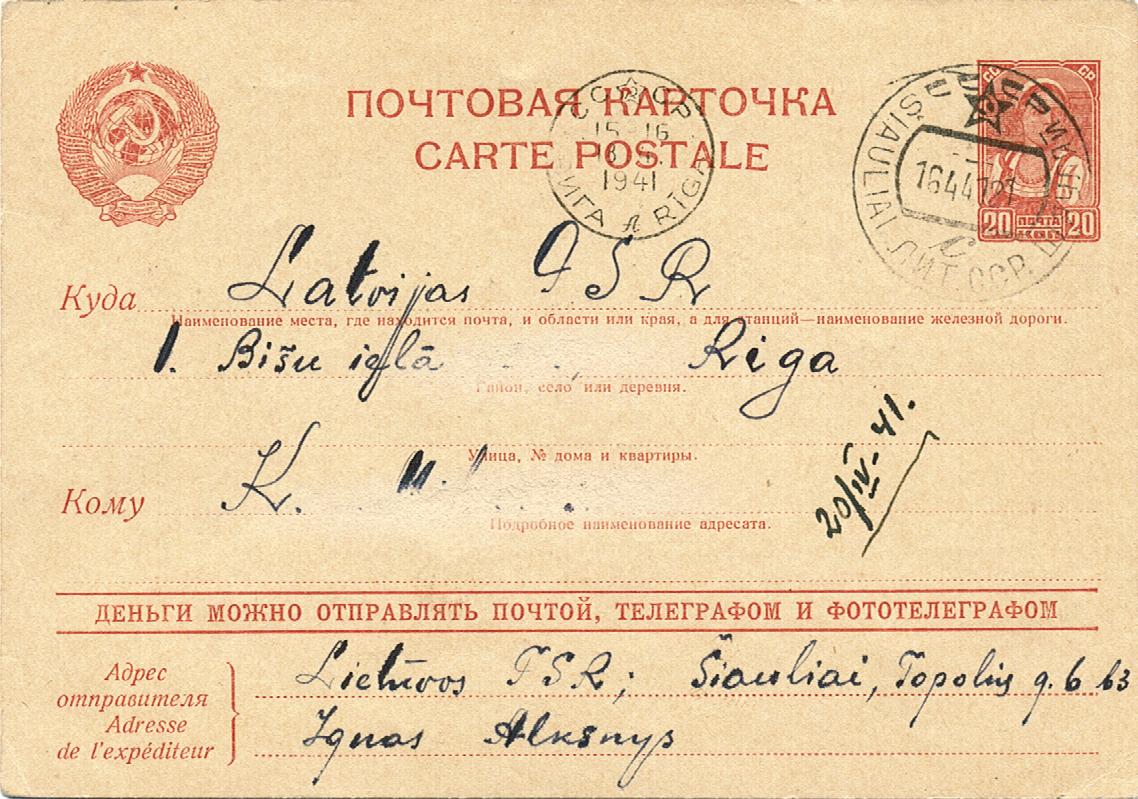 ПОЧТОВАЯ КАРТОЧКА
CARTE POSTALE
СССР
15-16
1941
РИГА RĪGA
СССР
ŠIAULIAI ЛИТ. ССР.
1644121
20 ПОЧТА КОП 20
Куда Latvijas PSR
Наименование места, где находится почта, и области или края, а для станций—наименование железной дороги.
1. Bišu ielā Riga
Район, село или деревня.
Улица, № дома и квартиры.
Кому K.
Подробное наименование адресата.
20/IV-41.
ДЕНЬГИ МОЖНО ОТПРАВЛЯТЬ ПОЧТОЙ, ТЕЛЕГРАФОМ И ФОТОТЕЛЕГРАФОМ
Адрес
отправителя
Adresse
de l'expéditeur
Lietuvos TSR; Šiauliai, Topolių g. 6 b3
Ignas Alksnys